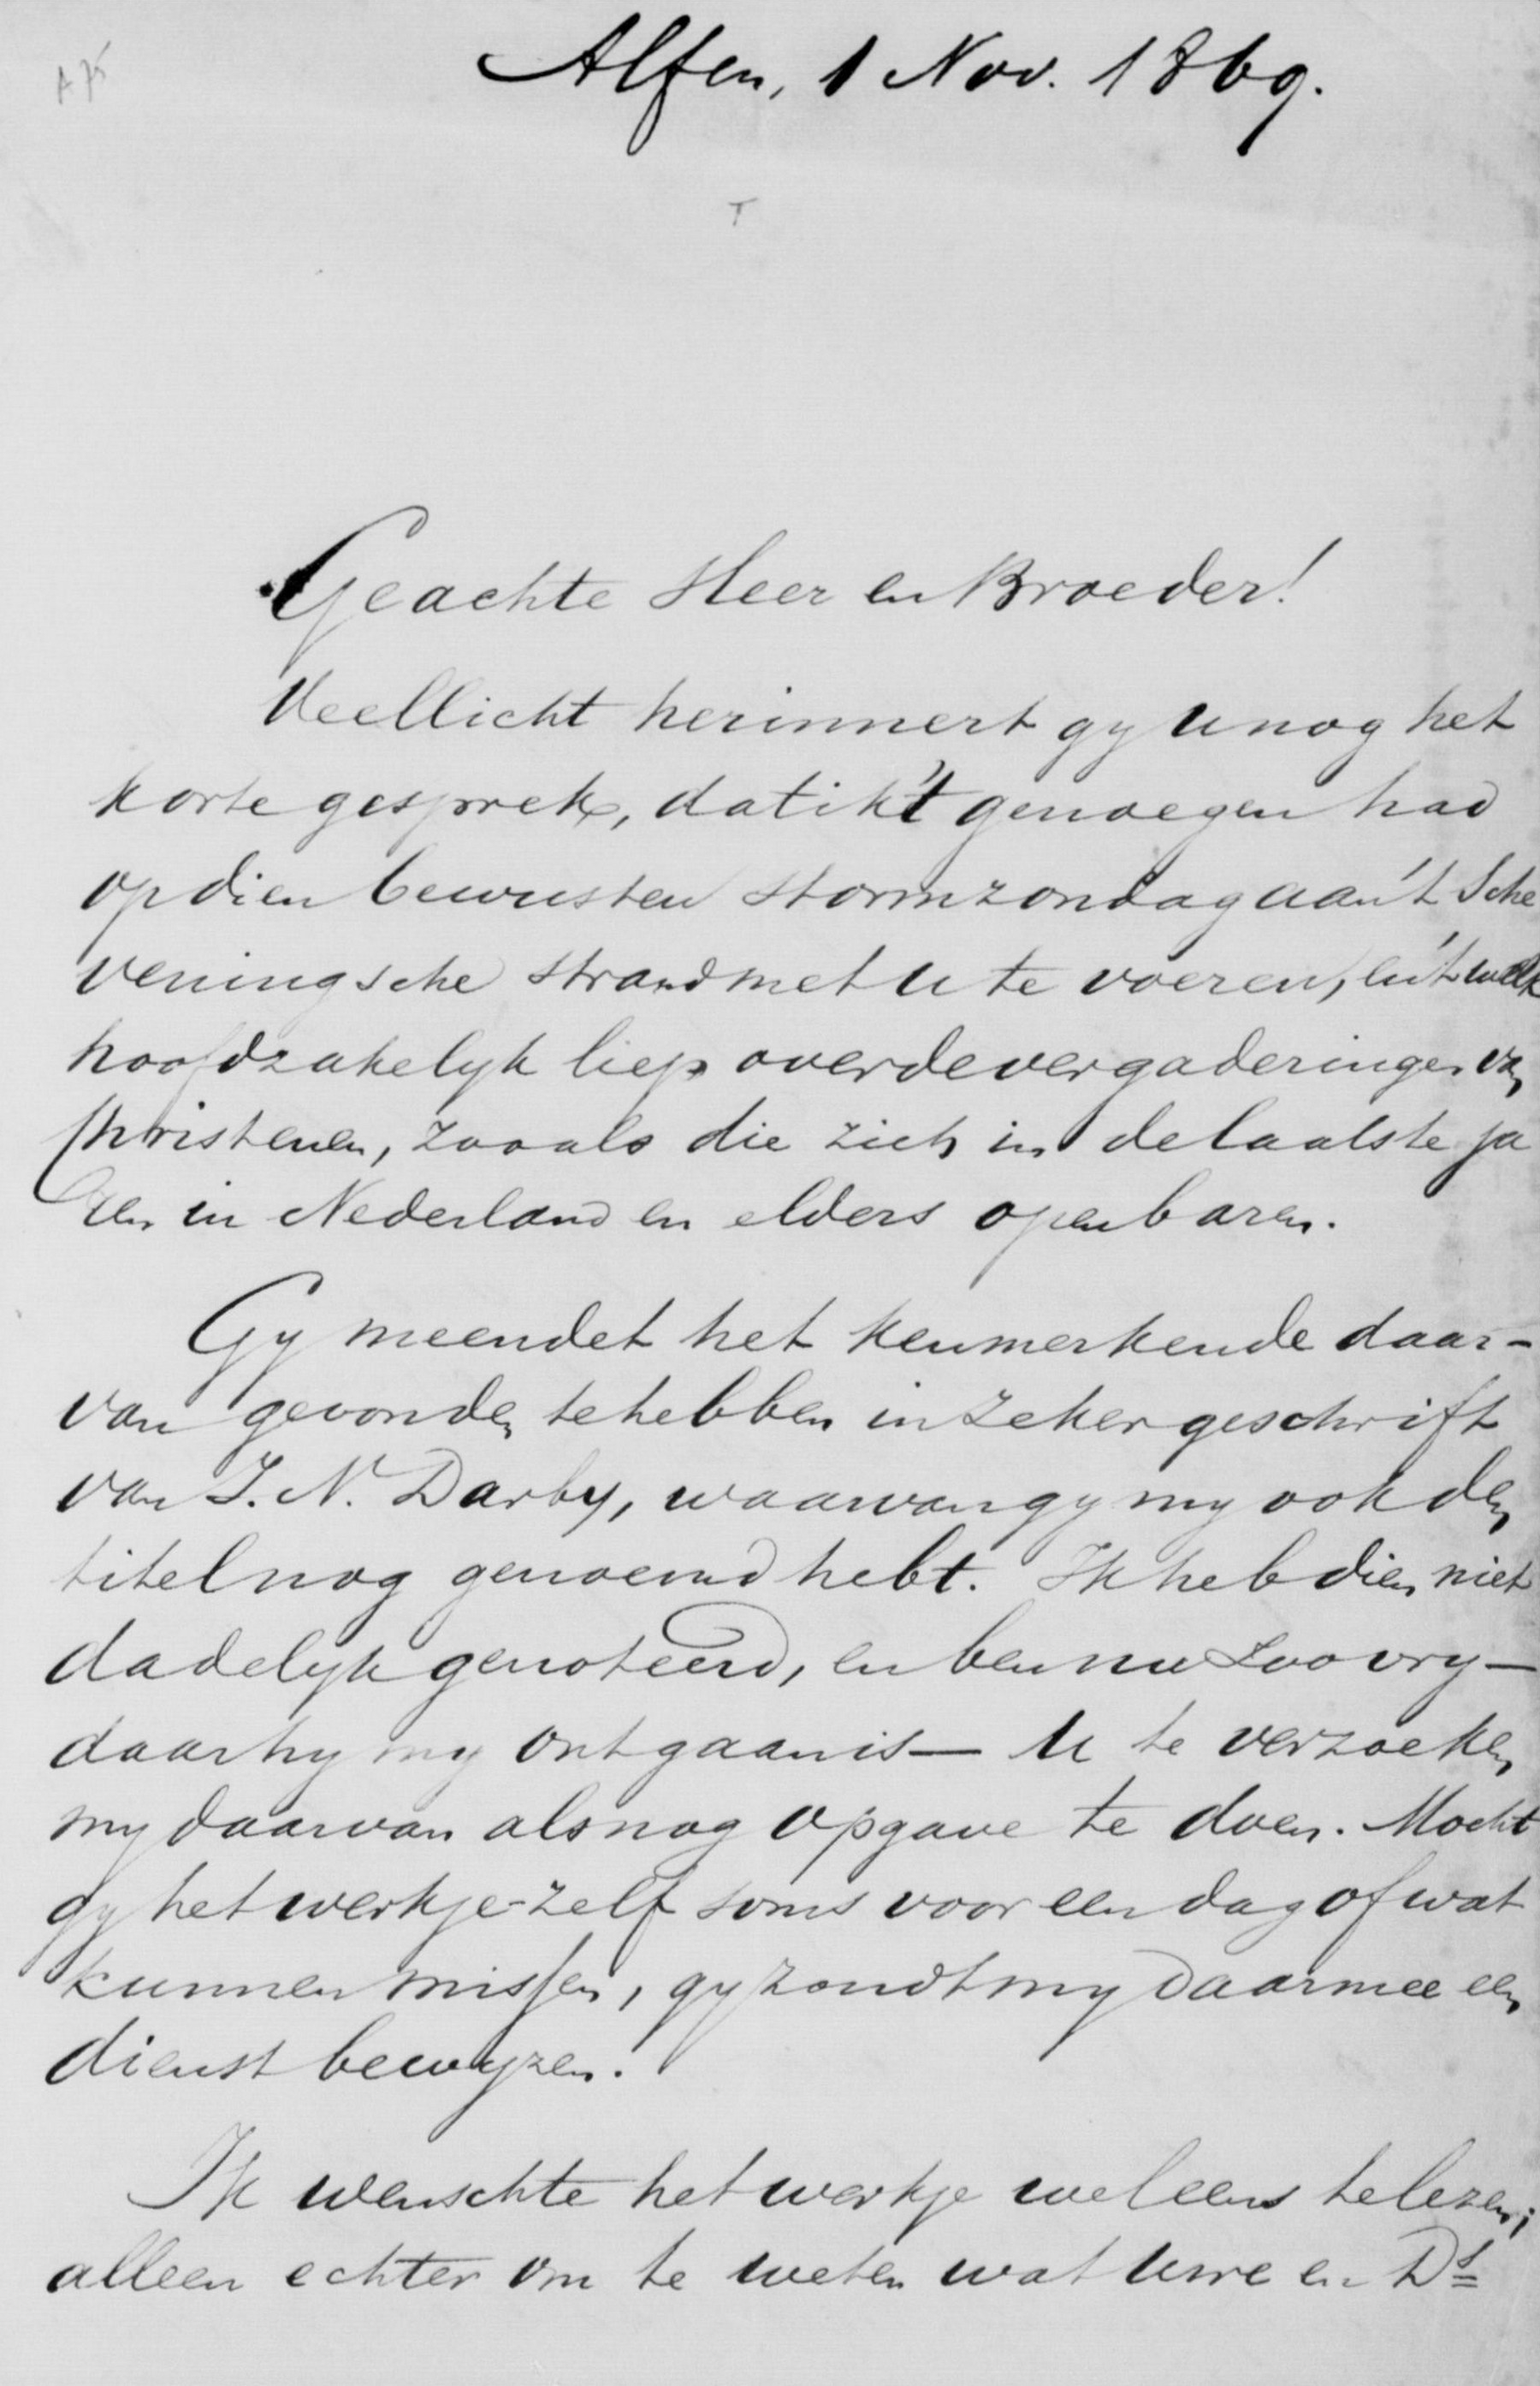 A 75
Alfen, 1 Nov. 1869.
T
Geachte Heer en Broeder!
Veellicht herinnert gy u nog het
korte gesprek, dat ik 't genoegen had
op dien bewusten stormzondag aan 't Sche
veningsche strand met u te voeren, en 't welk
hoofdzakelyk liep over de vergaderingen van
Christenen, zooals die zich in de laatste ja
ren in Nederland en elders openbaren.
Gy meendet het kenmerkende daar-
van gevonden te hebben in zeker geschrift
van J. N. Darby, waarvan gy my ook den
titel nog genoemd hebt. Ik heb dien niet
dadelyk genoteerd, en ben nu zoo vry—
daar hy my ontgaan is— U te verzoeken
my daarvan alsnog opgave te doen. Mocht
gy het werkje-zelf soms voor een dag of wat
kunnen missen, gy zoudt my daarmee een
dienst bewyzen.
Ik wenschte het werkje wel eens te lezen;
alleen echter om te weten wat uwe en Ds